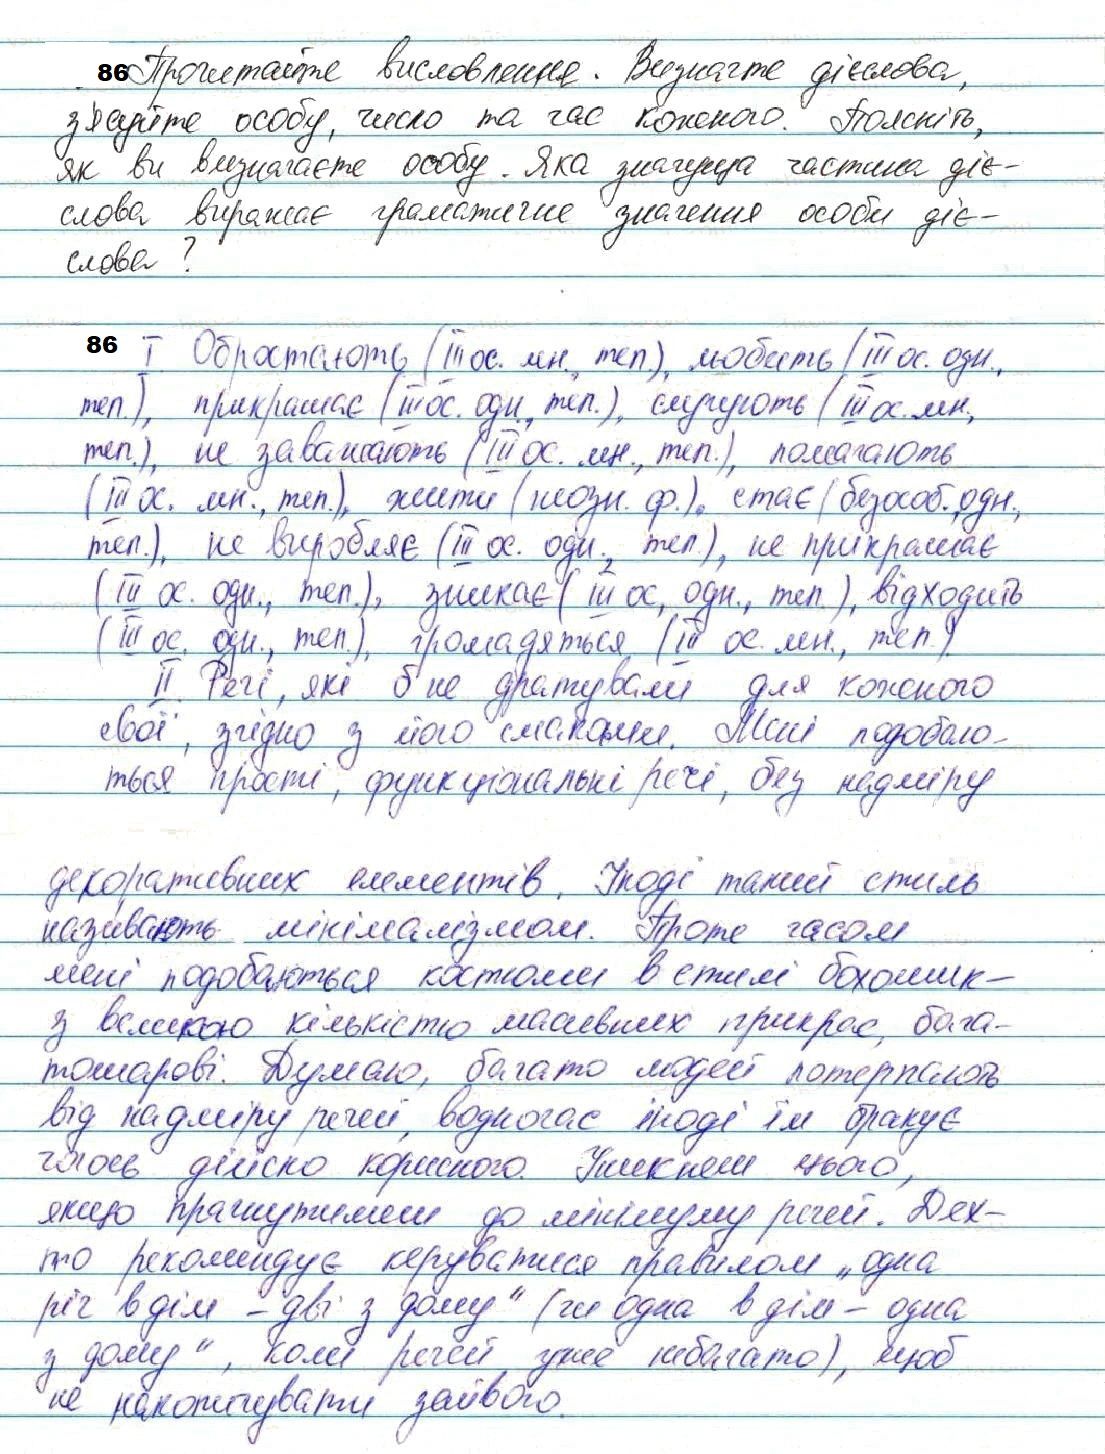 86 Прочитайте висловлення. Визначте дієслова,
з'ясуйте особу, число та час кожного. Поясніть,
як ви визначаєте особу. Яка значуща частина діє-
слова виражає граматичне значення особи діє-
слова?
86 I Обростають (III ос. мн., теп.), любить (III ос. одн.,
теп.), прикрашає (III ос. одн., теп.), слугують (III ос. мн.,
теп.), не заважають (III ос. мн., теп.), помагають
(III ос. мн., теп.), жити (неозн. ф.), стає (безособ., одн.,
теп.), не виробляє (III ос. одн., теп.), не прикрашає
(III ос. одн., теп.), зникає (III ос, одн., теп.), відходить
(III ос. одн., теп.), громадяться (III ос. мн., теп.)
II Речі, які б не дратували для кожного
свої, згідно з його смаками. Мені подобаю-
ться прості, функціональні речі, без надміру
декоративних елементів. Іноді такий стиль
називають мінімалізмом. Проте часом
мені подобаються костюми в стилі бохошик –
з великою кількістю масивних прикрас, бага-
тошарові. Думаю, багато людей потерпають
від надміру речей, водночас іноді їм бракує
чогось дійсно корисного. Уникнем цього,
якщо прагнутимем до мінімуму речей. Дех-
то рекомендує керуватися правилом „одна
річ в дім – дві з дому" (чи одна в дім – одна
з дому", коли речей уже небагато), щоб
не накопичувати зайвого.